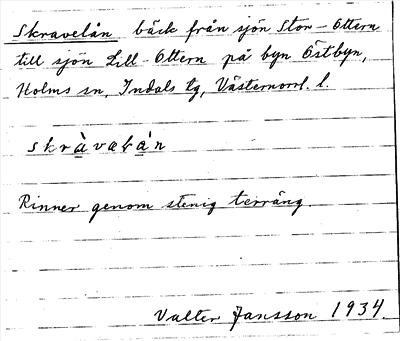 Skravelån bäck från sjön Stor-Ottern
till sjön Lill-Ottern på byn Östbyn,
Holms sn, Indals tg, Västernorrl. l.
skràvelån
Rinner genom stenig terräng.
Valter Jansson 1934.